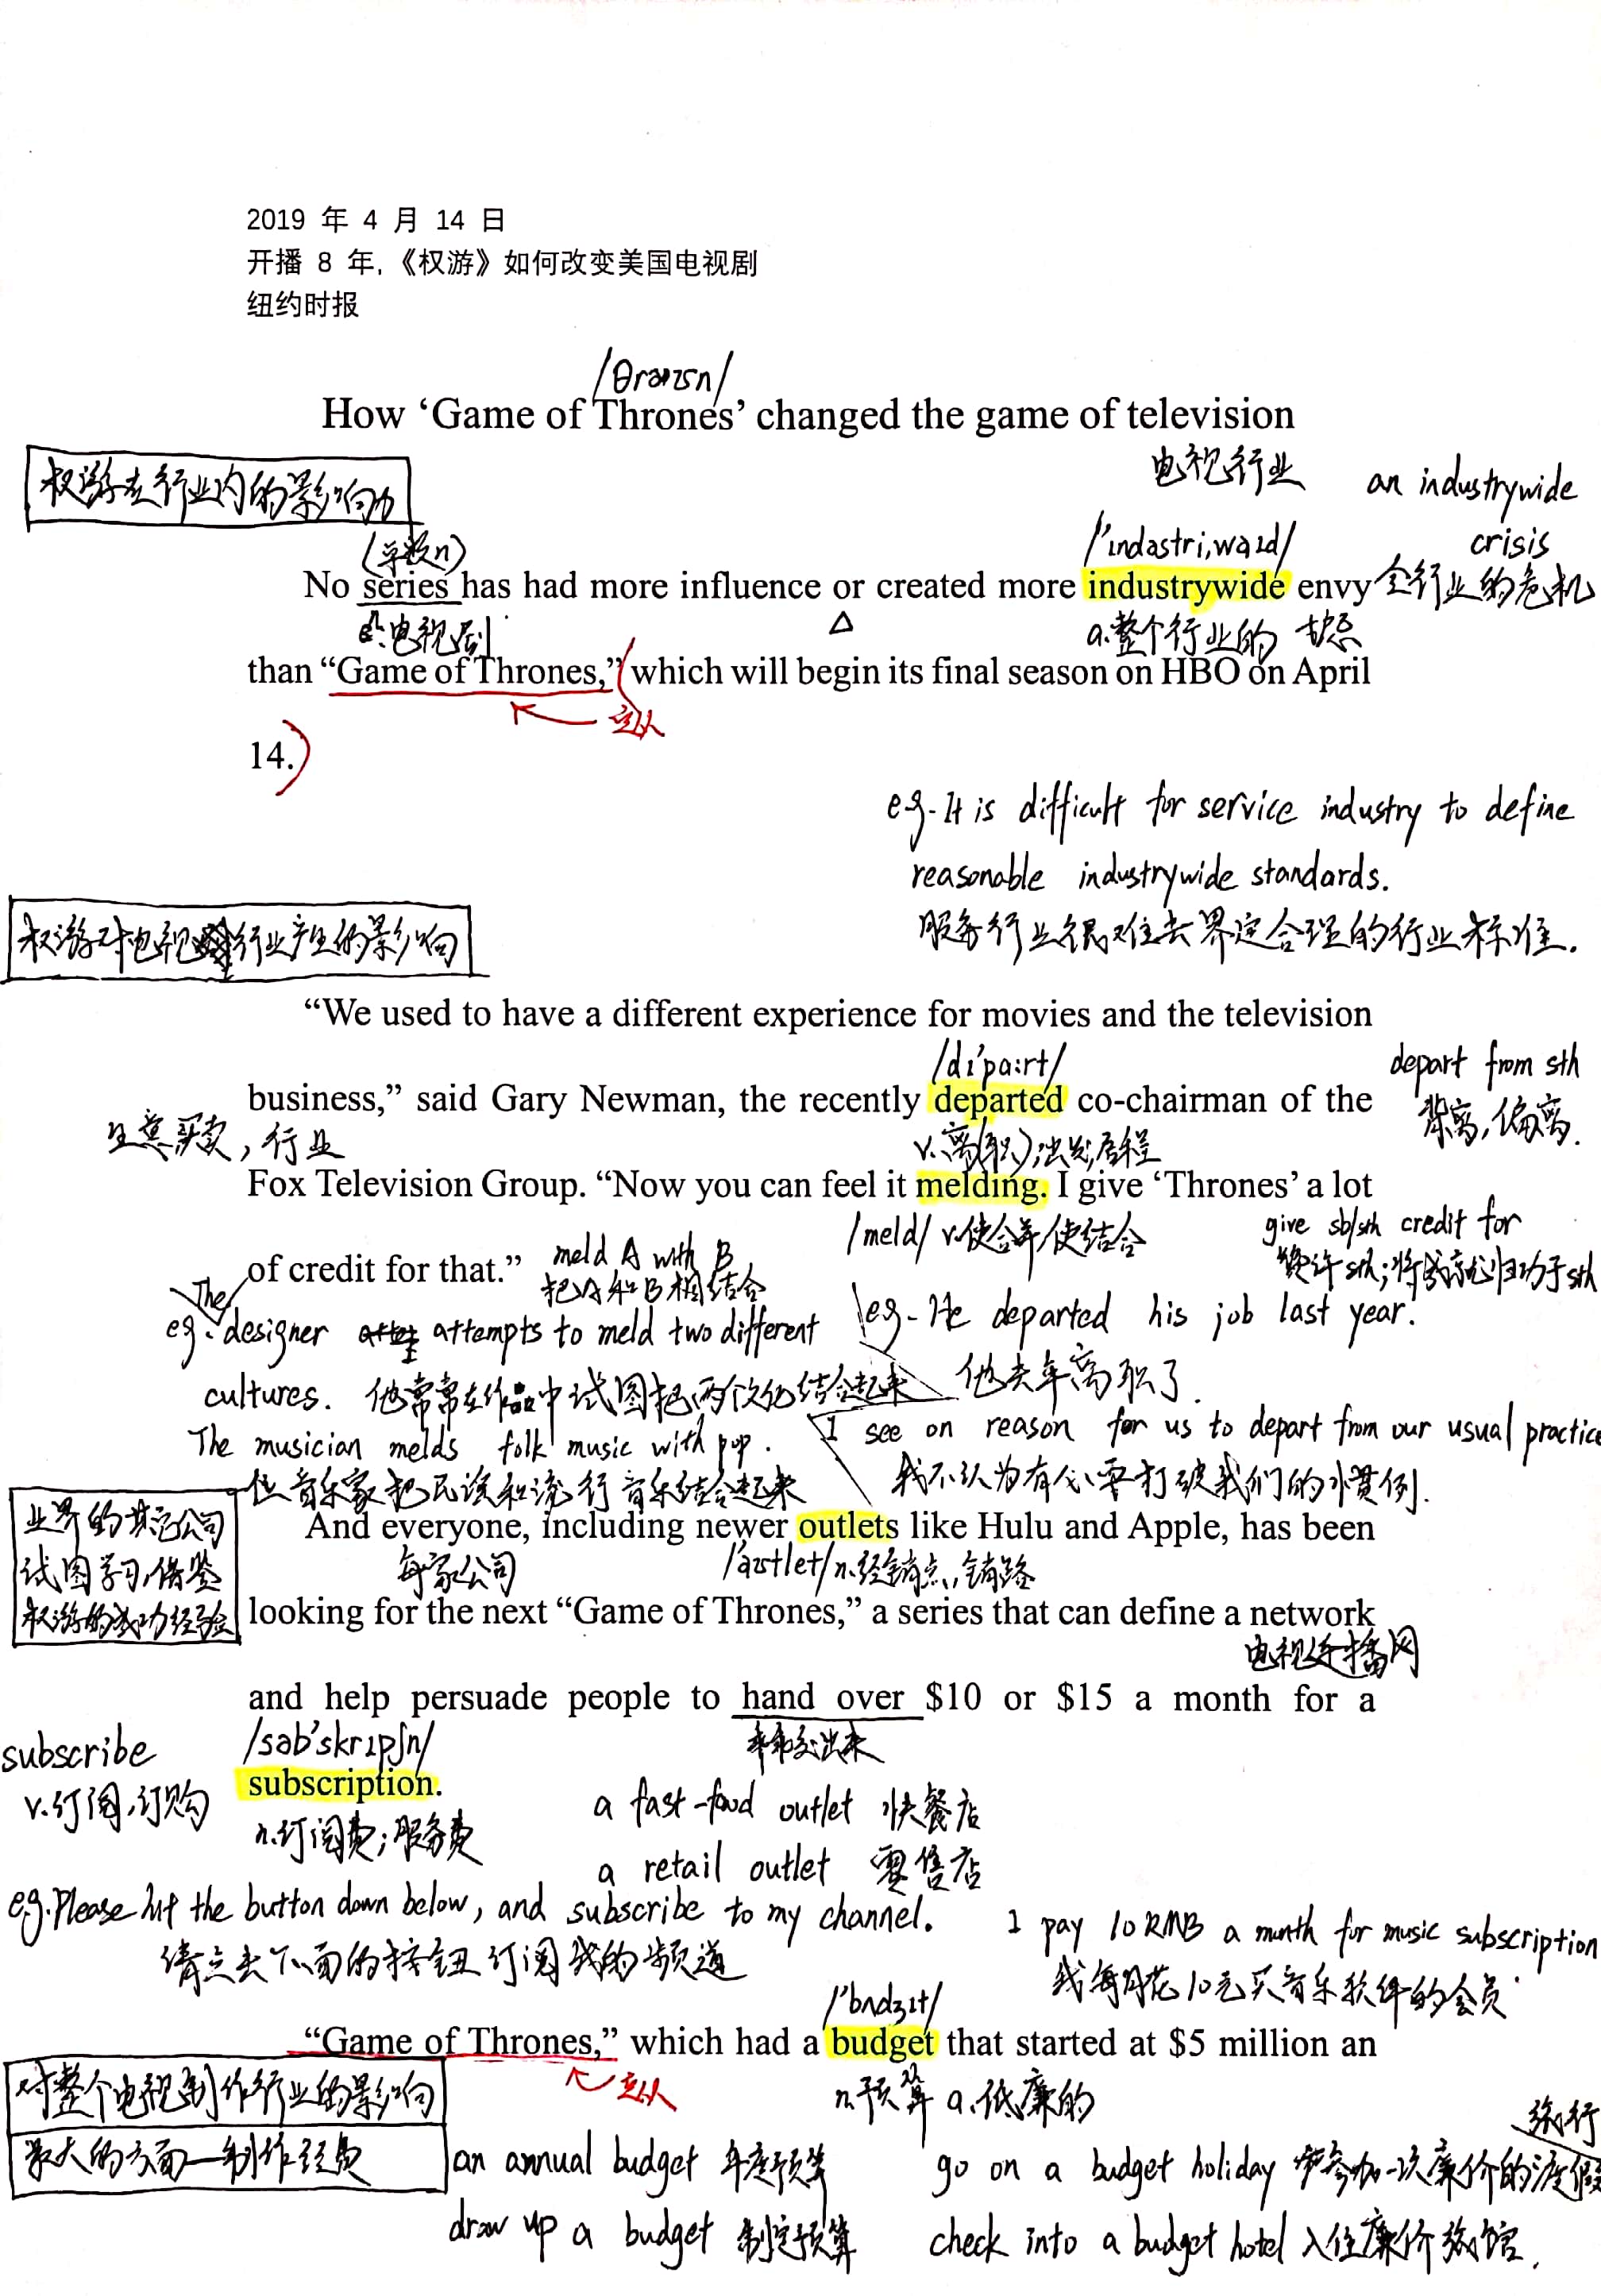 2019 年 4 月 14 日
开播 8 年,《权游》如何改变美国电视剧
纽约时报
/θrəʊzn/
How ‘Game of Thrones’ changed the game of television
权游在行业内的影响力
电视行业
an industrywide
crisis
全行业的危机
(单数n)
/'ɪndəstri,waɪd/
No series has had more influence or created more industrywide envy
n.电视剧
a.整个行业的
than “Game of Thrones,” which will begin its final season on HBO on April
定从
14.
e.g. It is difficult for service industry to define
reasonable industrywide standards.
服务行业很难去界定合理的行业标准.
权游对电视行业产生的影响
“We used to have a different experience for movies and the television
/dɪ'pɑ:rt/
depart from sth
背离,偏离.
business,” said Gary Newman, the recently departed co-chairman of the
生意买卖,行业
v.离(职);出发;启程
Fox Television Group. “Now you can feel it melding. I give ‘Thrones’ a lot
/meld/ v.使合并,使结合
give sb/sth credit for
赞许sth;将成就归功于sth
of credit for that.”
meld A with B
把A和B相结合
eg. The designer attempts to meld two different
cultures. 他常常在作品中试图把两个文化结合起来
The musician melds folk music with pop.
位音乐家把民谣和流行音乐结合起来
eg. He departed his job last year.
他去年离职了.
I see on reason for us to depart from our usual practice
我不认为有必要打破我们的惯例.
业界的其它公司
试图学习,借鉴
权游的成功经验
And everyone, including newer outlets like Hulu and Apple, has been
每家公司
/'aʊtlet/ n.经销点,销路
looking for the next “Game of Thrones,” a series that can define a network
电视连播网
and help persuade people to hand over $10 or $15 a month for a
乖乖交出来
subscribe
v.订阅,订购
/səb'skrɪpʃn/
subscription.
n.订阅费;服务费
a fast-food outlet 快餐店
a retail outlet 零售店
e.g. Please hit the button down below, and subscribe to my channel.
请点击下面的按钮订阅我的频道
I pay 10 RMB a month for music subscription
我每月花10元买音乐软件的会员.
/'bʌdʒɪt/
“Game of Thrones,” which had a budget that started at $5 million an
定从
n.预算 a.低廉的
对整个电视制作行业的影响
最大的方面—制作经费
an annual budget 年度预算
draw up a budget 制定预算
旅行
go on a budget holiday 参加一次廉价的渡假
check into a budget hotel 入住廉价旅馆.